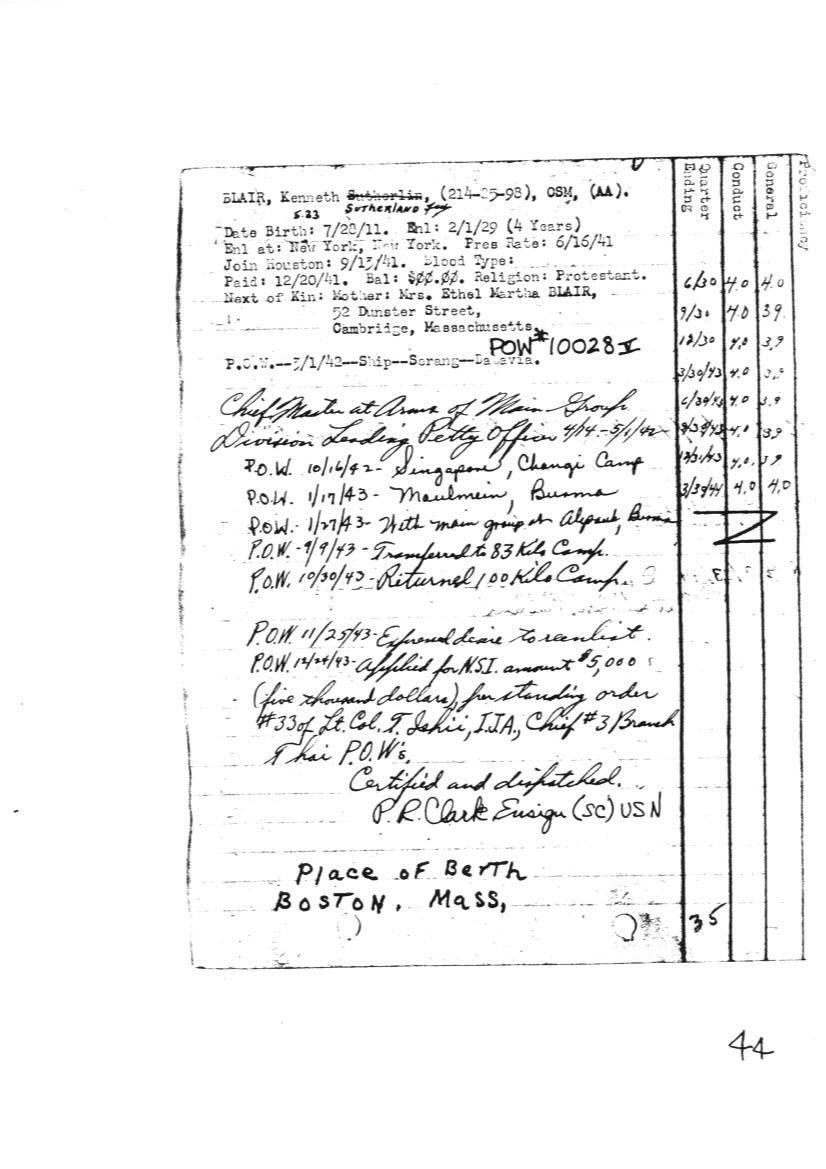 BLAIR, Kenneth Sutherlin, (214-25-98), OSM, (AA).
5.23 SUTHERLAND
Date Birth: 7/28/11. Enl: 2/1/29 (4 Years)
Enl at: New York, New York. Pres Rate: 6/16/41
Join Houston: 9/13/41. Blood Type:
Paid: 12/20/41. Bal: $00.00. Religion: Protestant.
Next of Kin: Mother: Mrs. Ethel Martha BLAIR,
52 Dunster Street,
Cambridge, Massachusetts.
POW # 10028 V
P.O.W.--3/1/42--Ship--Serang--Batavia.
Chief Master at Arms of Main Group
Division Leading Petty Officer 4/14-5/1/42
P.O.W. 10/16/42- Singapore, Changi Camp
P.O.W. 1/17/43 - Maulmein, Burma
P.O.W.- 1/27/43- With main group at Burma
P.O.W.- 9/9/43 - Transferred to 83 Kilo Camp.
P.O.W. 10/30/43 - Returned 100 Kilo Camp.
P.O.W. 11/25/43- Expressed desire to reenlist.
P.O.W. 12/24/43- Applied for N.S.I. amount $5,000
(five thousand dollars), per standing order
#33 of Lt. Col. T. Ishii, I.J.A., Chief #3 Branch
Thai P.O.W's.
Certified and dispatched.
P. R. Clark Ensign (SC) USN
Place of Berth
BOSTON. Mass,
Quarter Ending Conduct General Proficiency
6/30 4.0 4.0
9/30 4.0 3.9
12/30 4.0 3.9
3/30/43 4.0 3.9
6/30/43 4.0 3.9
4.0 3.9
12/31/43 4.0 3.9
3/30/44 4.0 4.0
35
44